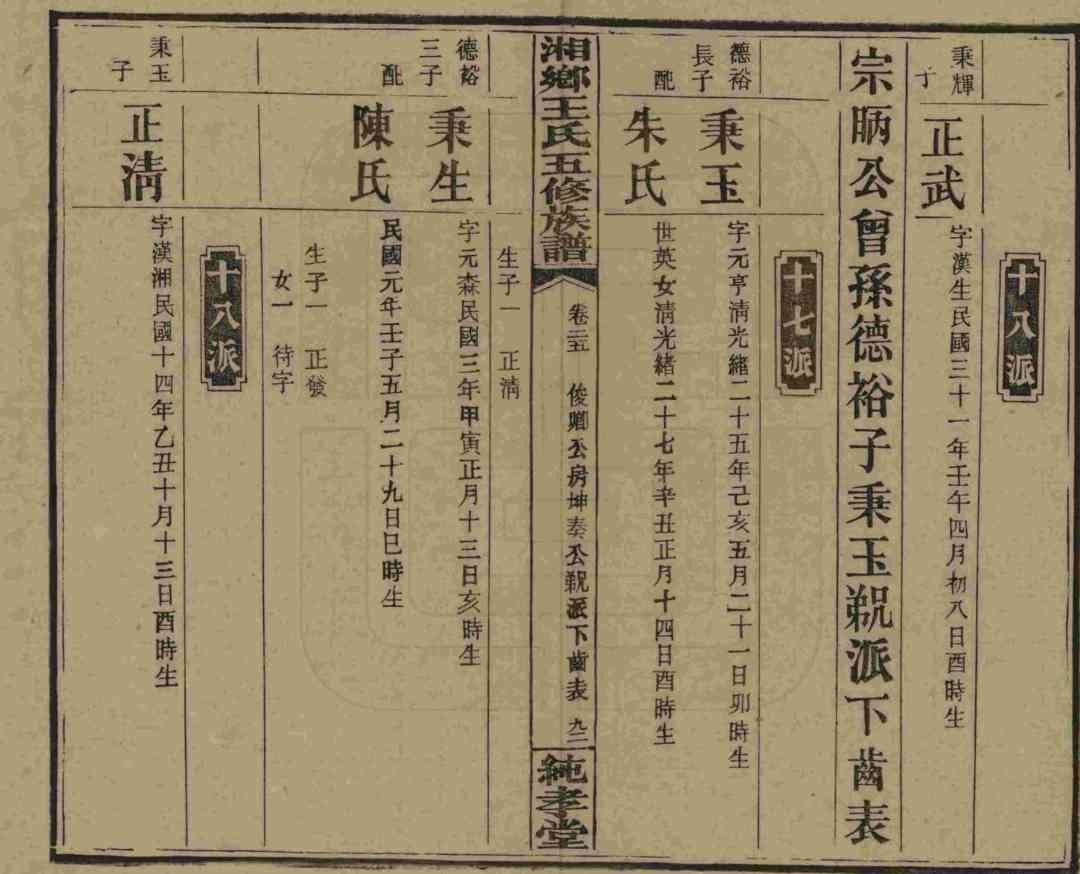 十八派
秉輝子
正武
字漢生民國三十一年壬午四月初八日酉時生
宗昞公曾孫德裕子秉玉覨派下齒表
十七派
德裕長子
秉玉
字元亨淸光緒二十五年己亥五月二十一日卯時生
配
朱氏
世英女淸光緒二十七年辛丑正月十四日酉時生
湘鄉王氏五修族譜
卷三五
俊卿公房坤奏公覨派下齒表
九二
純孝堂
生子一 正淸
德裕三子
秉生
字元森民國三年甲寅正月十三日亥時生
配
陳氏
民國元年壬子五月二十九日巳時生
生子一 正發
女一 待字
十八派
秉玉子
正淸
字漢湘民國十四年乙丑十月十三日酉時生